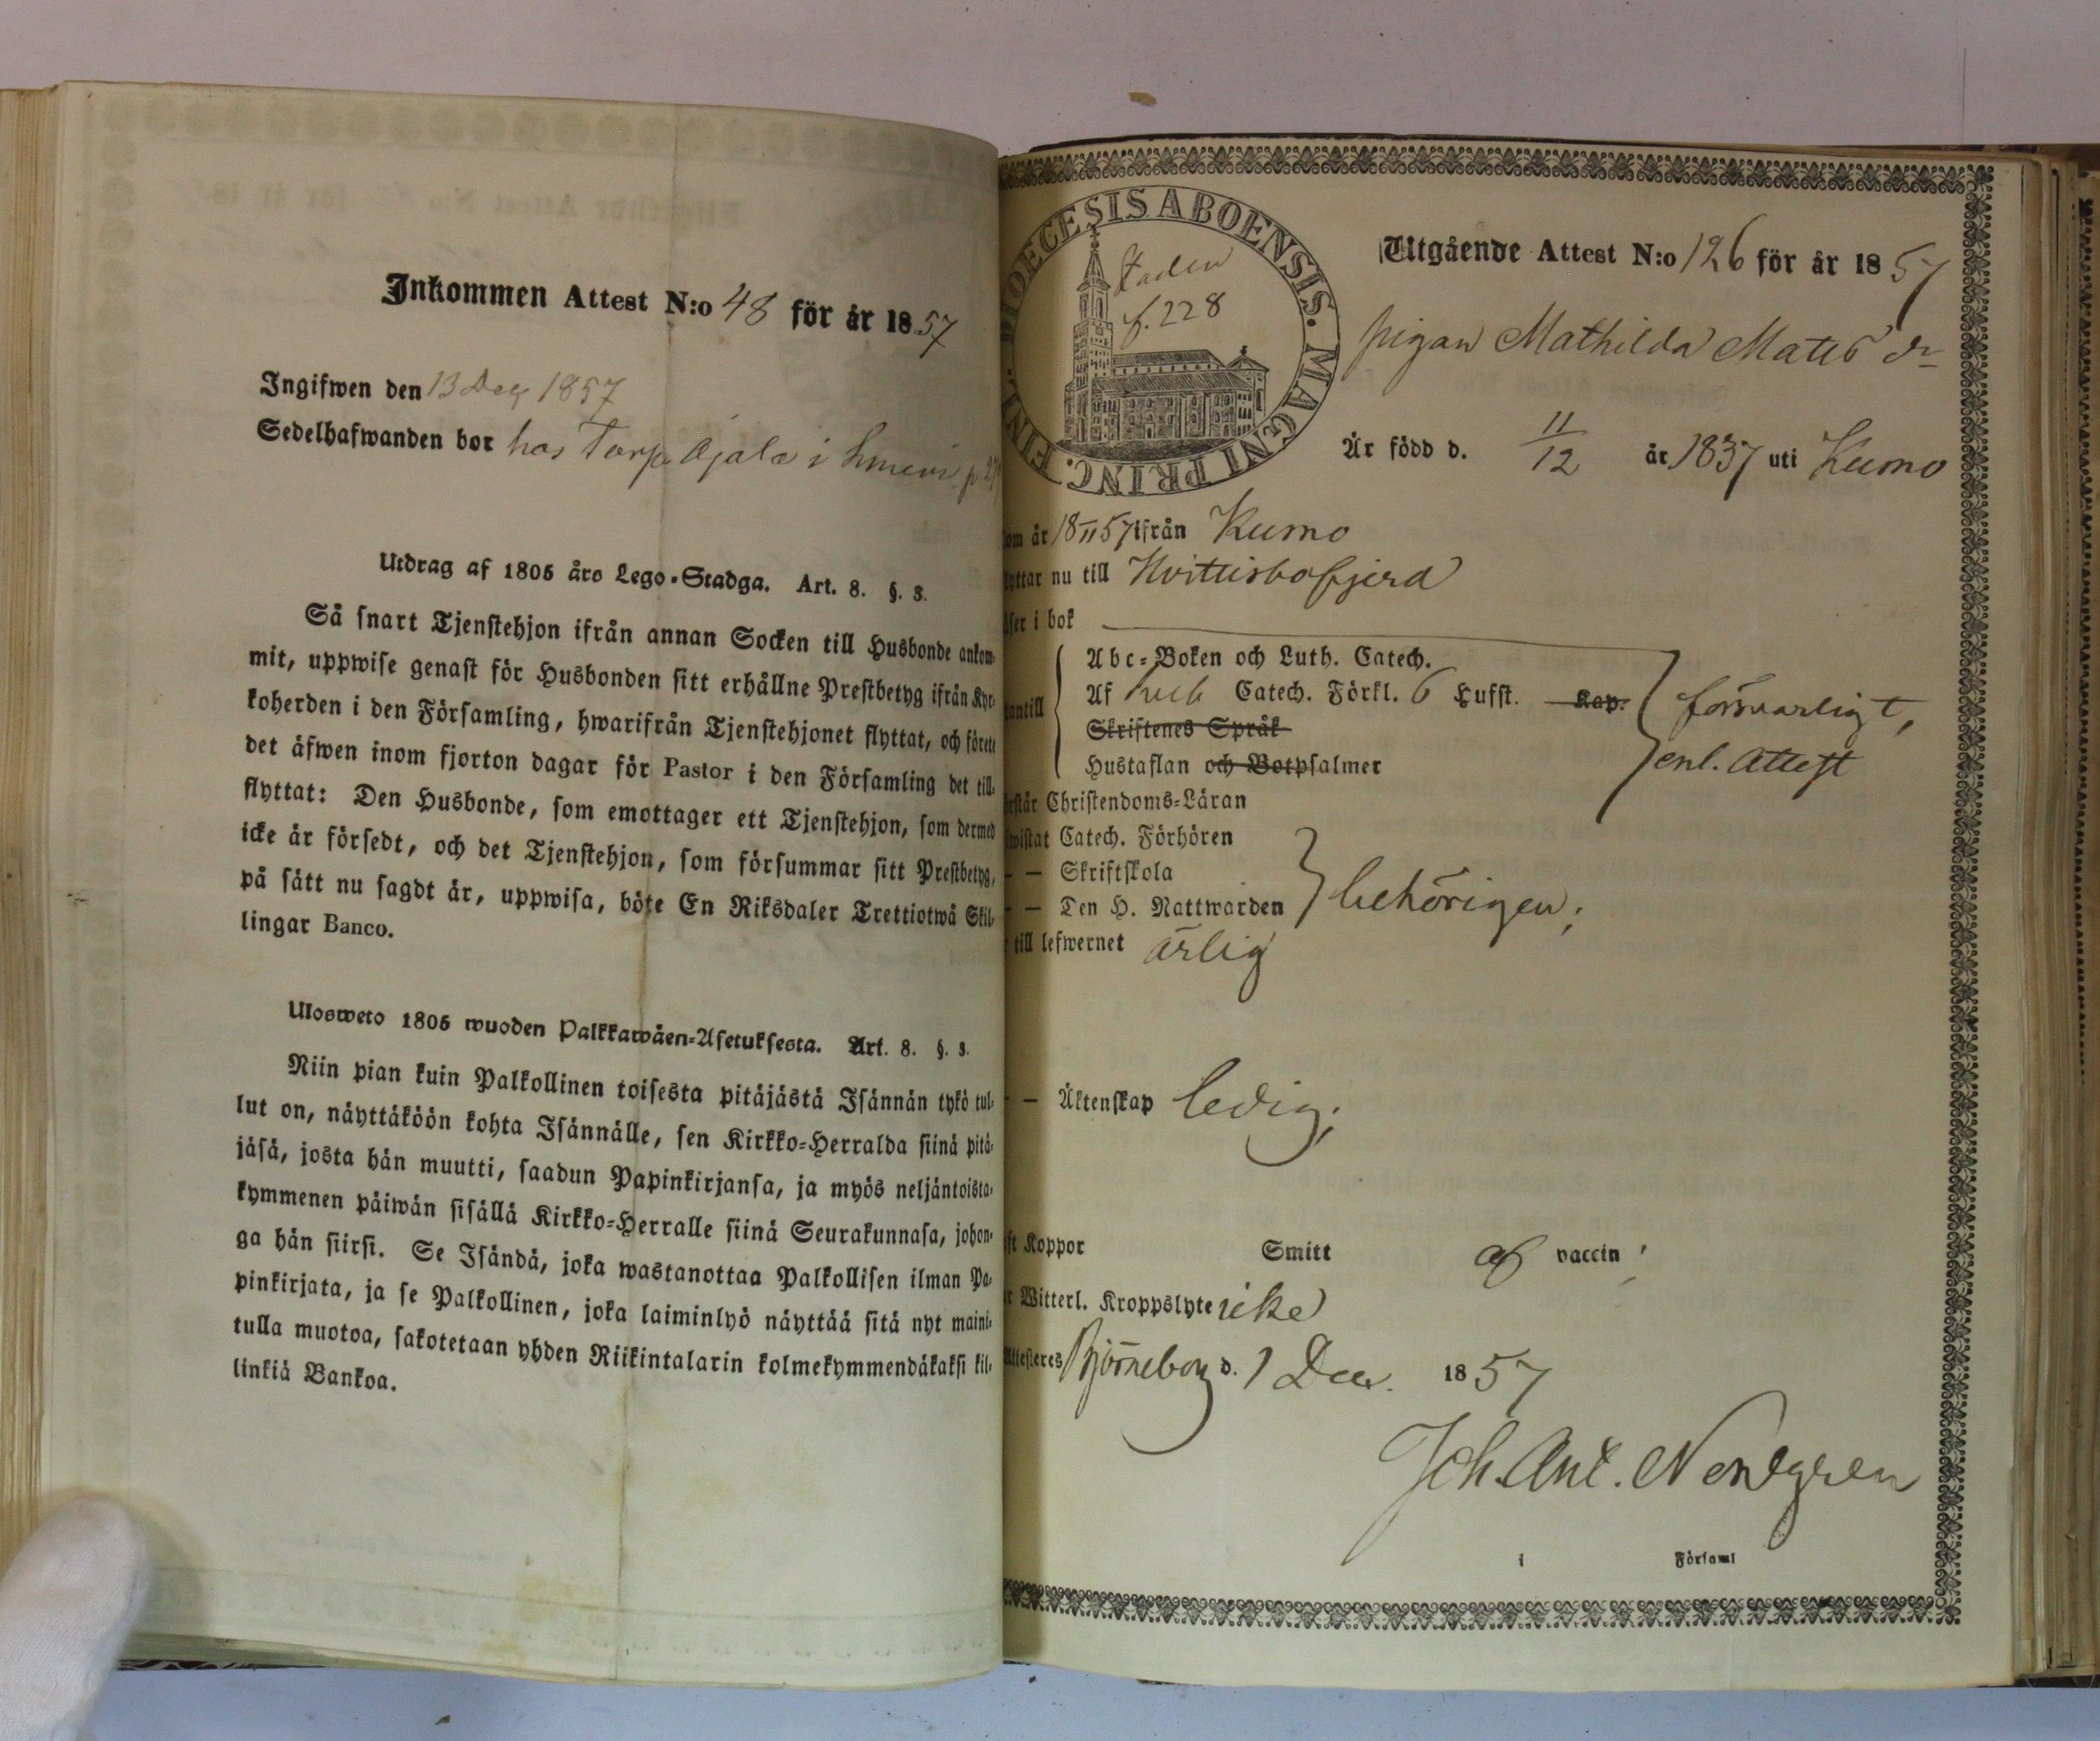 Inkommen Attest N:o 48 för år 1857
Ingifwen den 13 Dec 1857
Sedelhafwanden bor hos Torp. Ajala i
Utdrag af 1805 års Lego-Stadga. Art. 8. §. 3.
Så snart Tjenstehjon ifrån annan Socken till Husbonde ankom-
mit, uppwise genast för Husbonden sitt erhållne Prestbetyg ifrån Kyr-
koherden i den Församling, hwarifrån Tjenstehjonet flyttat, och förete
det äfwen inom fjorton dagar för Pastor i den Församling det till-
flyttat: Den Husbonde, som emottager ett Tjenstehjon, som dermed
icke är försedt, och det Tjenstehjon, som försummar sitt Prestbetyg,
på sätt nu sagdt är, uppwisa, böte En Riksdaler Trettiotwå Skil-
lingar Banco.
Ulosweto 1805 wuoden Palkkawäen-Asetuksesta. Art. 8. §. 3.
Niin pian kuin Palkollinen toisesta pitäjästä Isännän tykö tul-
lut on, näyttäköön kohta Isännälle, sen Kirkko-Herralda siinä pitä-
jäsä, josta hän muutti, saadun Papinkirjansa, ja myös neljäntoista-
kymmenen päiwän sisällä Kirkko-Herralle siinä Seurakunnasa, johon-
ga hän siirsi. Se Isändä, joka wastanottaa Palkollisen ilman Pa-
pinkirjata, ja se Palkollinen, joka laiminlyö näyttää sitä nyt maini-
tulla muotoa, sakotetaan yhden Riikintalarin kolmekymmendäkaksi kil-
linkiä Bankoa.
DIOECESIS ABOENSIS. MAGNI PRINC. FINL.
Staden
f. 228
Utgående Attest N:o 126 för år 1857
pigan Mathilda Mats dr
Är född d. 11/12 år 1837 uti Kumo
om år 18 11 57 ifrån Kumo
yttar nu till Hvittisbofjerd
äser i bok
Abc-Boken och Luth. Catech.
antill Af Catech. Förkl. 6 Hufst. Kap. försvarligt,
Skriftenes Språk
Hustaflan och Botpsalmer enl. Attest
rstår Christendoms-Läran
wistat Catech. Förhören
— — Skriftskola
— — Den H. Nattwarden behörigen;
till lefwernet ärlig
— — Äktenskap ledig;
ft Koppor Smitt af vaccin;
r Witterl. Kroppslyte icke
Attesteres Björneborg d. 1 Dec. 1857
Joh. Ant. Nordgren
i Församl